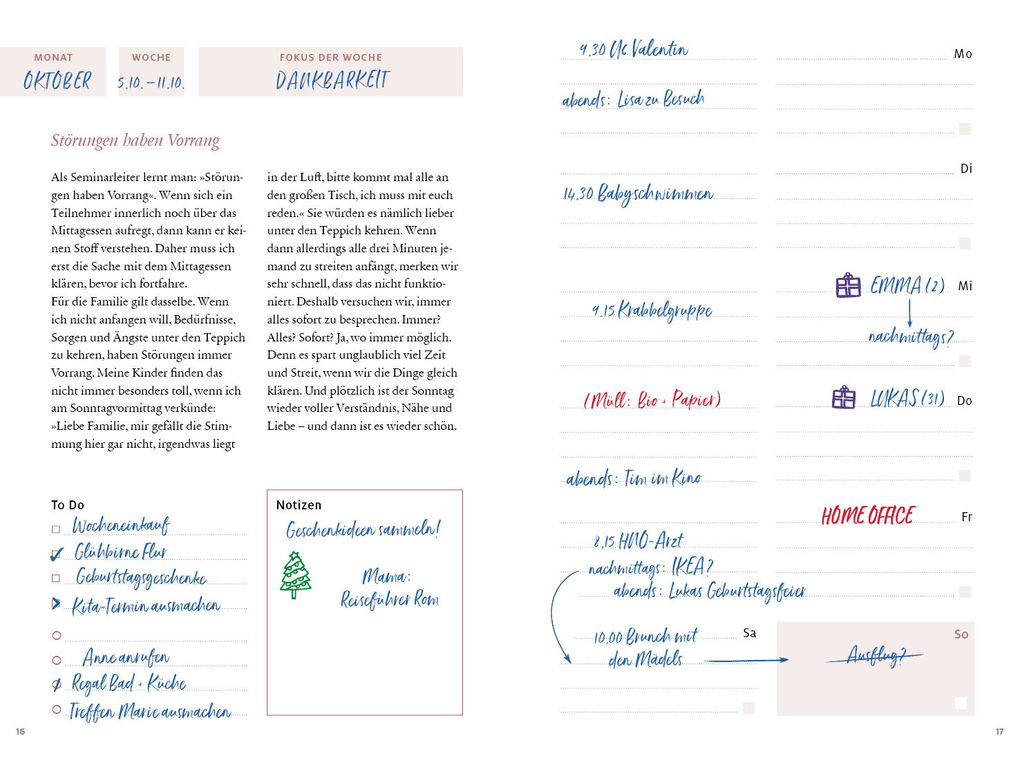 MONAT
OKTOBER
WOCHE
5.10. – 11.10.
FOKUS DER WOCHE
DANKBARKEIT
Störungen haben Vorrang
Als Seminarleiter lernt man: »Störun-
gen haben Vorrang«. Wenn sich ein
Teilnehmer innerlich noch über das
Mittagessen aufregt, dann kann er kei-
nen Stoff verstehen. Daher muss ich
erst die Sache mit dem Mittagessen
klären, bevor ich fortfahre.
Für die Familie gilt dasselbe. Wenn
ich nicht anfangen will, Bedürfnisse,
Sorgen und Ängste unter den Teppich
zu kehren, haben Störungen immer
Vorrang. Meine Kinder finden das
nicht immer besonders toll, wenn ich
am Sonntagvormittag verkünde:
»Liebe Familie, mir gefällt die Stim-
mung hier gar nicht, irgendwas liegt
in der Luft, bitte kommt mal alle an
den großen Tisch, ich muss mit euch
reden.« Sie würden es nämlich lieber
unter den Teppich kehren. Wenn
dann allerdings alle drei Minuten je-
mand zu streiten anfängt, merken wir
sehr schnell, dass das nicht funktio-
niert. Deshalb versuchen wir, immer
alles sofort zu besprechen. Immer?
Alles? Sofort? Ja, wo immer möglich.
Denn es spart unglaublich viel Zeit
und Streit, wenn wir die Dinge gleich
klären. Und plötzlich ist der Sonntag
wieder voller Verständnis, Nähe und
Liebe – und dann ist es wieder schön.
To Do
Wocheneinkauf
Glühbirne Flur
Geburtstagsgeschenke
Kita-Termin ausmachen
Anne anrufen
Regal Bad + Küche
Treffen Marie ausmachen
Notizen
Geschenkideen sammeln!
Mama:
Reiseführer Rom
16
9.30 U6 Valentin
Mo
abends: Lisa zu Besuch
Di
14.30 Babyschwimmen
EMMA (2)
Mi
9.15 Krabbelgruppe
nachmittags?
(Müll: Bio + Papier)
LUKAS (31)
Do
abends: Tim im Kino
HOME OFFICE
Fr
8.15 HNO-Arzt
nachmittags: IKEA?
abends: Lukas Geburtstagsfeier
10.00 Brunch mit
den Mädels
Sa
So
Ausflug?
17